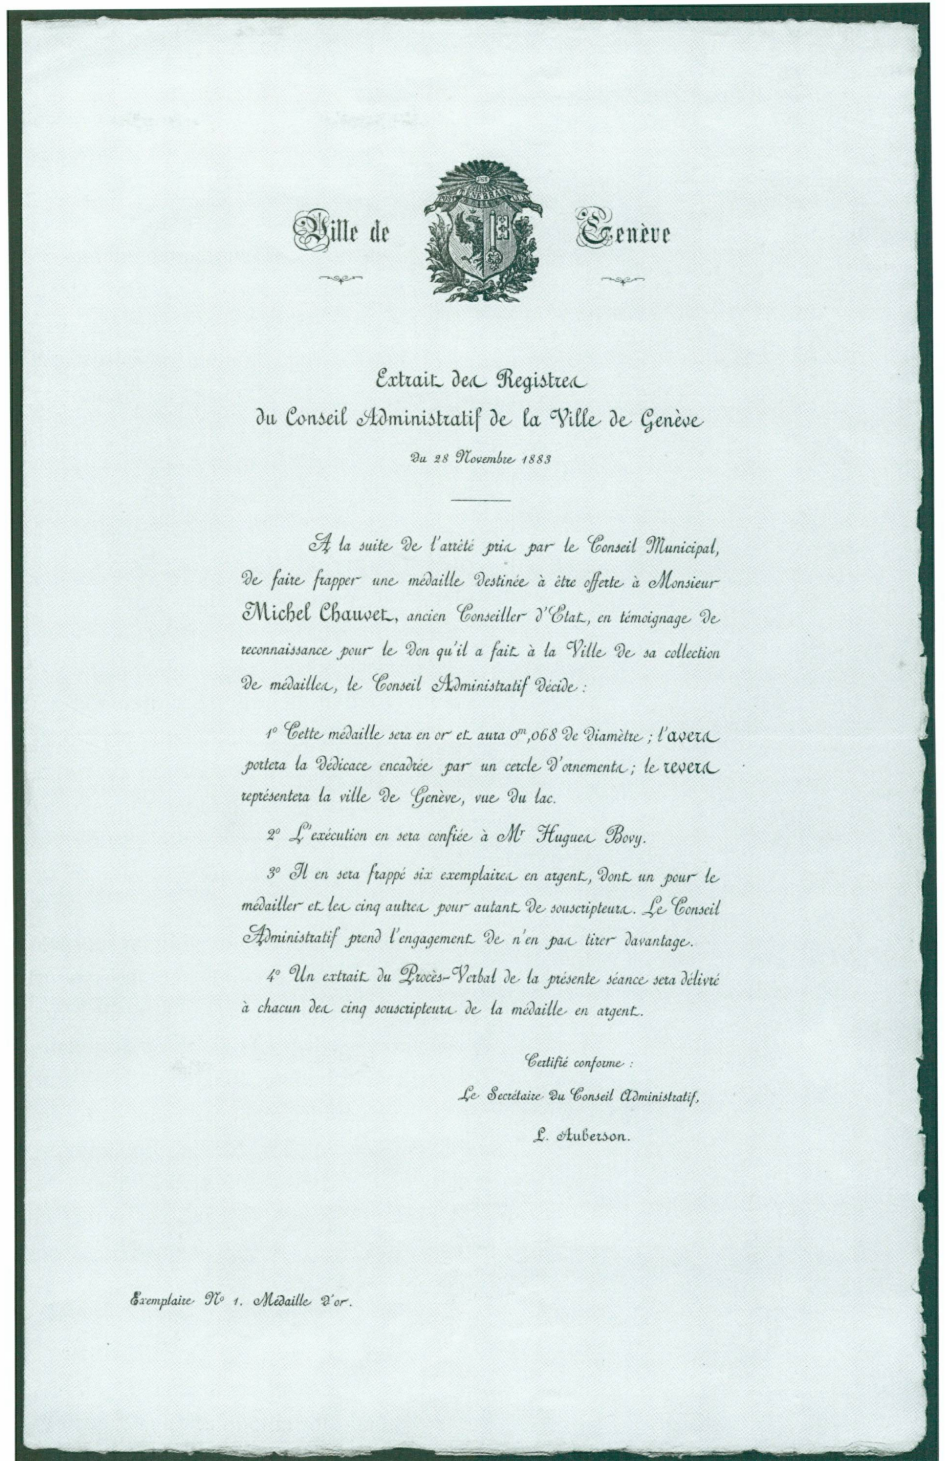 Ville de Genève
Extrait des Registres
du Conseil Administratif de la Ville de Genève
Du 28 Novembre 1883
A la suite de l'arrêté pris par le Conseil Municipal,
de faire frapper une médaille destinée à être offerte à Monsieur
Michel Chauvet, ancien Conseiller d'Etat, en témoignage de
reconnaissance pour le don qu'il a fait à la Ville de sa collection
de médailles, le Conseil Administratif décide :
1º Cette médaille sera en or et aura 0ᵐ,068 de diamètre ; l'avers
portera la dédicace encadrée par un cercle d'ornements ; le revers
représentera la ville de Genève, vue du lac.
2º L'exécution en sera confiée à Mʳ Hugues Bovy.
3º Il en sera frappé six exemplaires en argent, dont un pour le
médailler et les cinq autres pour autant de souscripteurs. Le Conseil
Administratif prend l'engagement de n'en pas tirer davantage.
4º Un extrait du Procès-Verbal de la présente séance sera délivré
à chacun des cinq souscripteurs de la médaille en argent.
Certifié conforme :
Le Secrétaire du Conseil Administratif,
L. Auberson.
Exemplaire Nº 1. Médaille d'or.